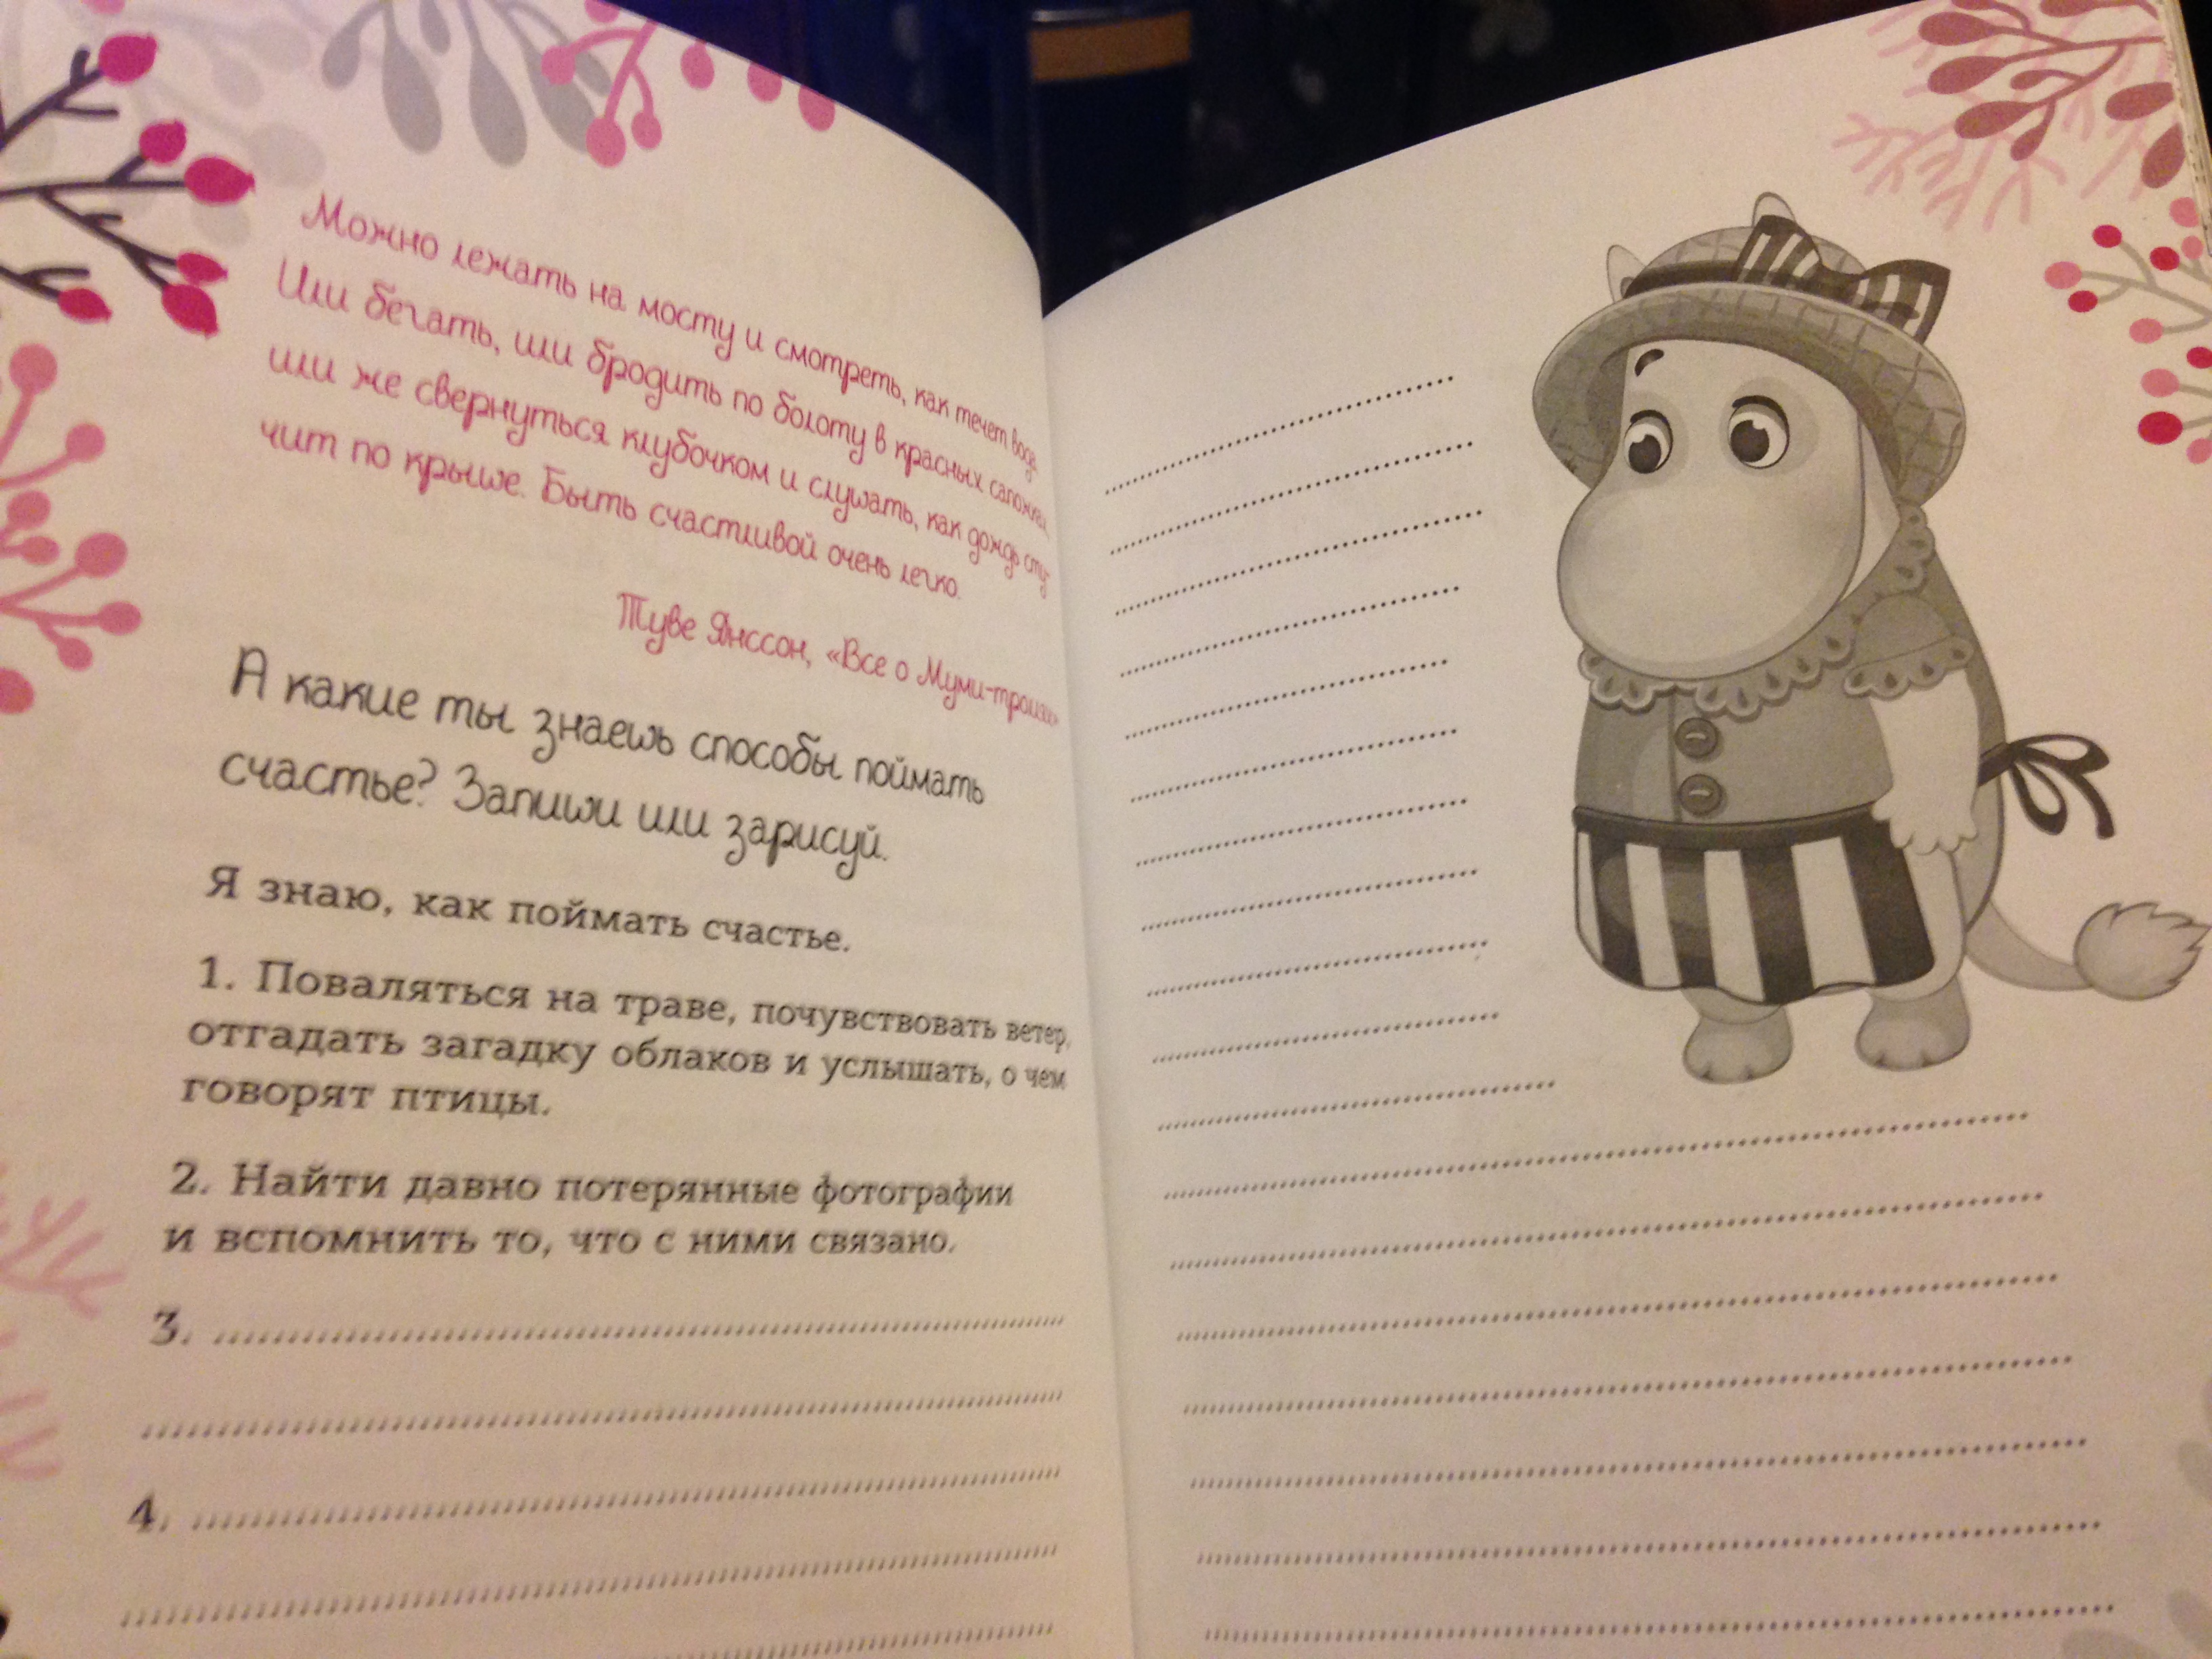 Можно лежать на мосту и смотреть, как течет вода.
Или бегать, или бродить по болоту в красных сапожках,
или же свернуться клубочком и слушать, как дождь сту-
чит по крыше. Быть счастливой очень легко.
Туве Янссон, «Все о Муми-троллях»
А какие ты знаешь способы поймать
счастье? Запиши или зарисуй.
Я знаю, как поймать счастье.
1. Поваляться на траве, почувствовать ветер,
отгадать загадку облаков и услышать, о чем
говорят птицы.
2. Найти давно потерянные фотографии
и вспомнить то, что с ними связано.
3.
4.